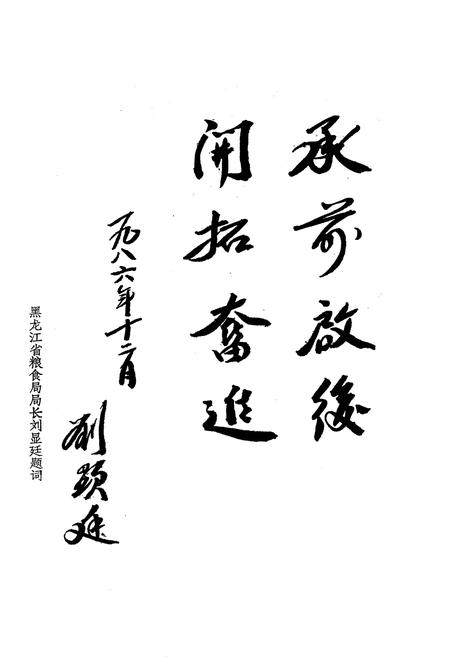 承前啟後
開拓奮進
一九八六年十二月
劉顯廷
黑龙江省粮食局局长刘显廷题词